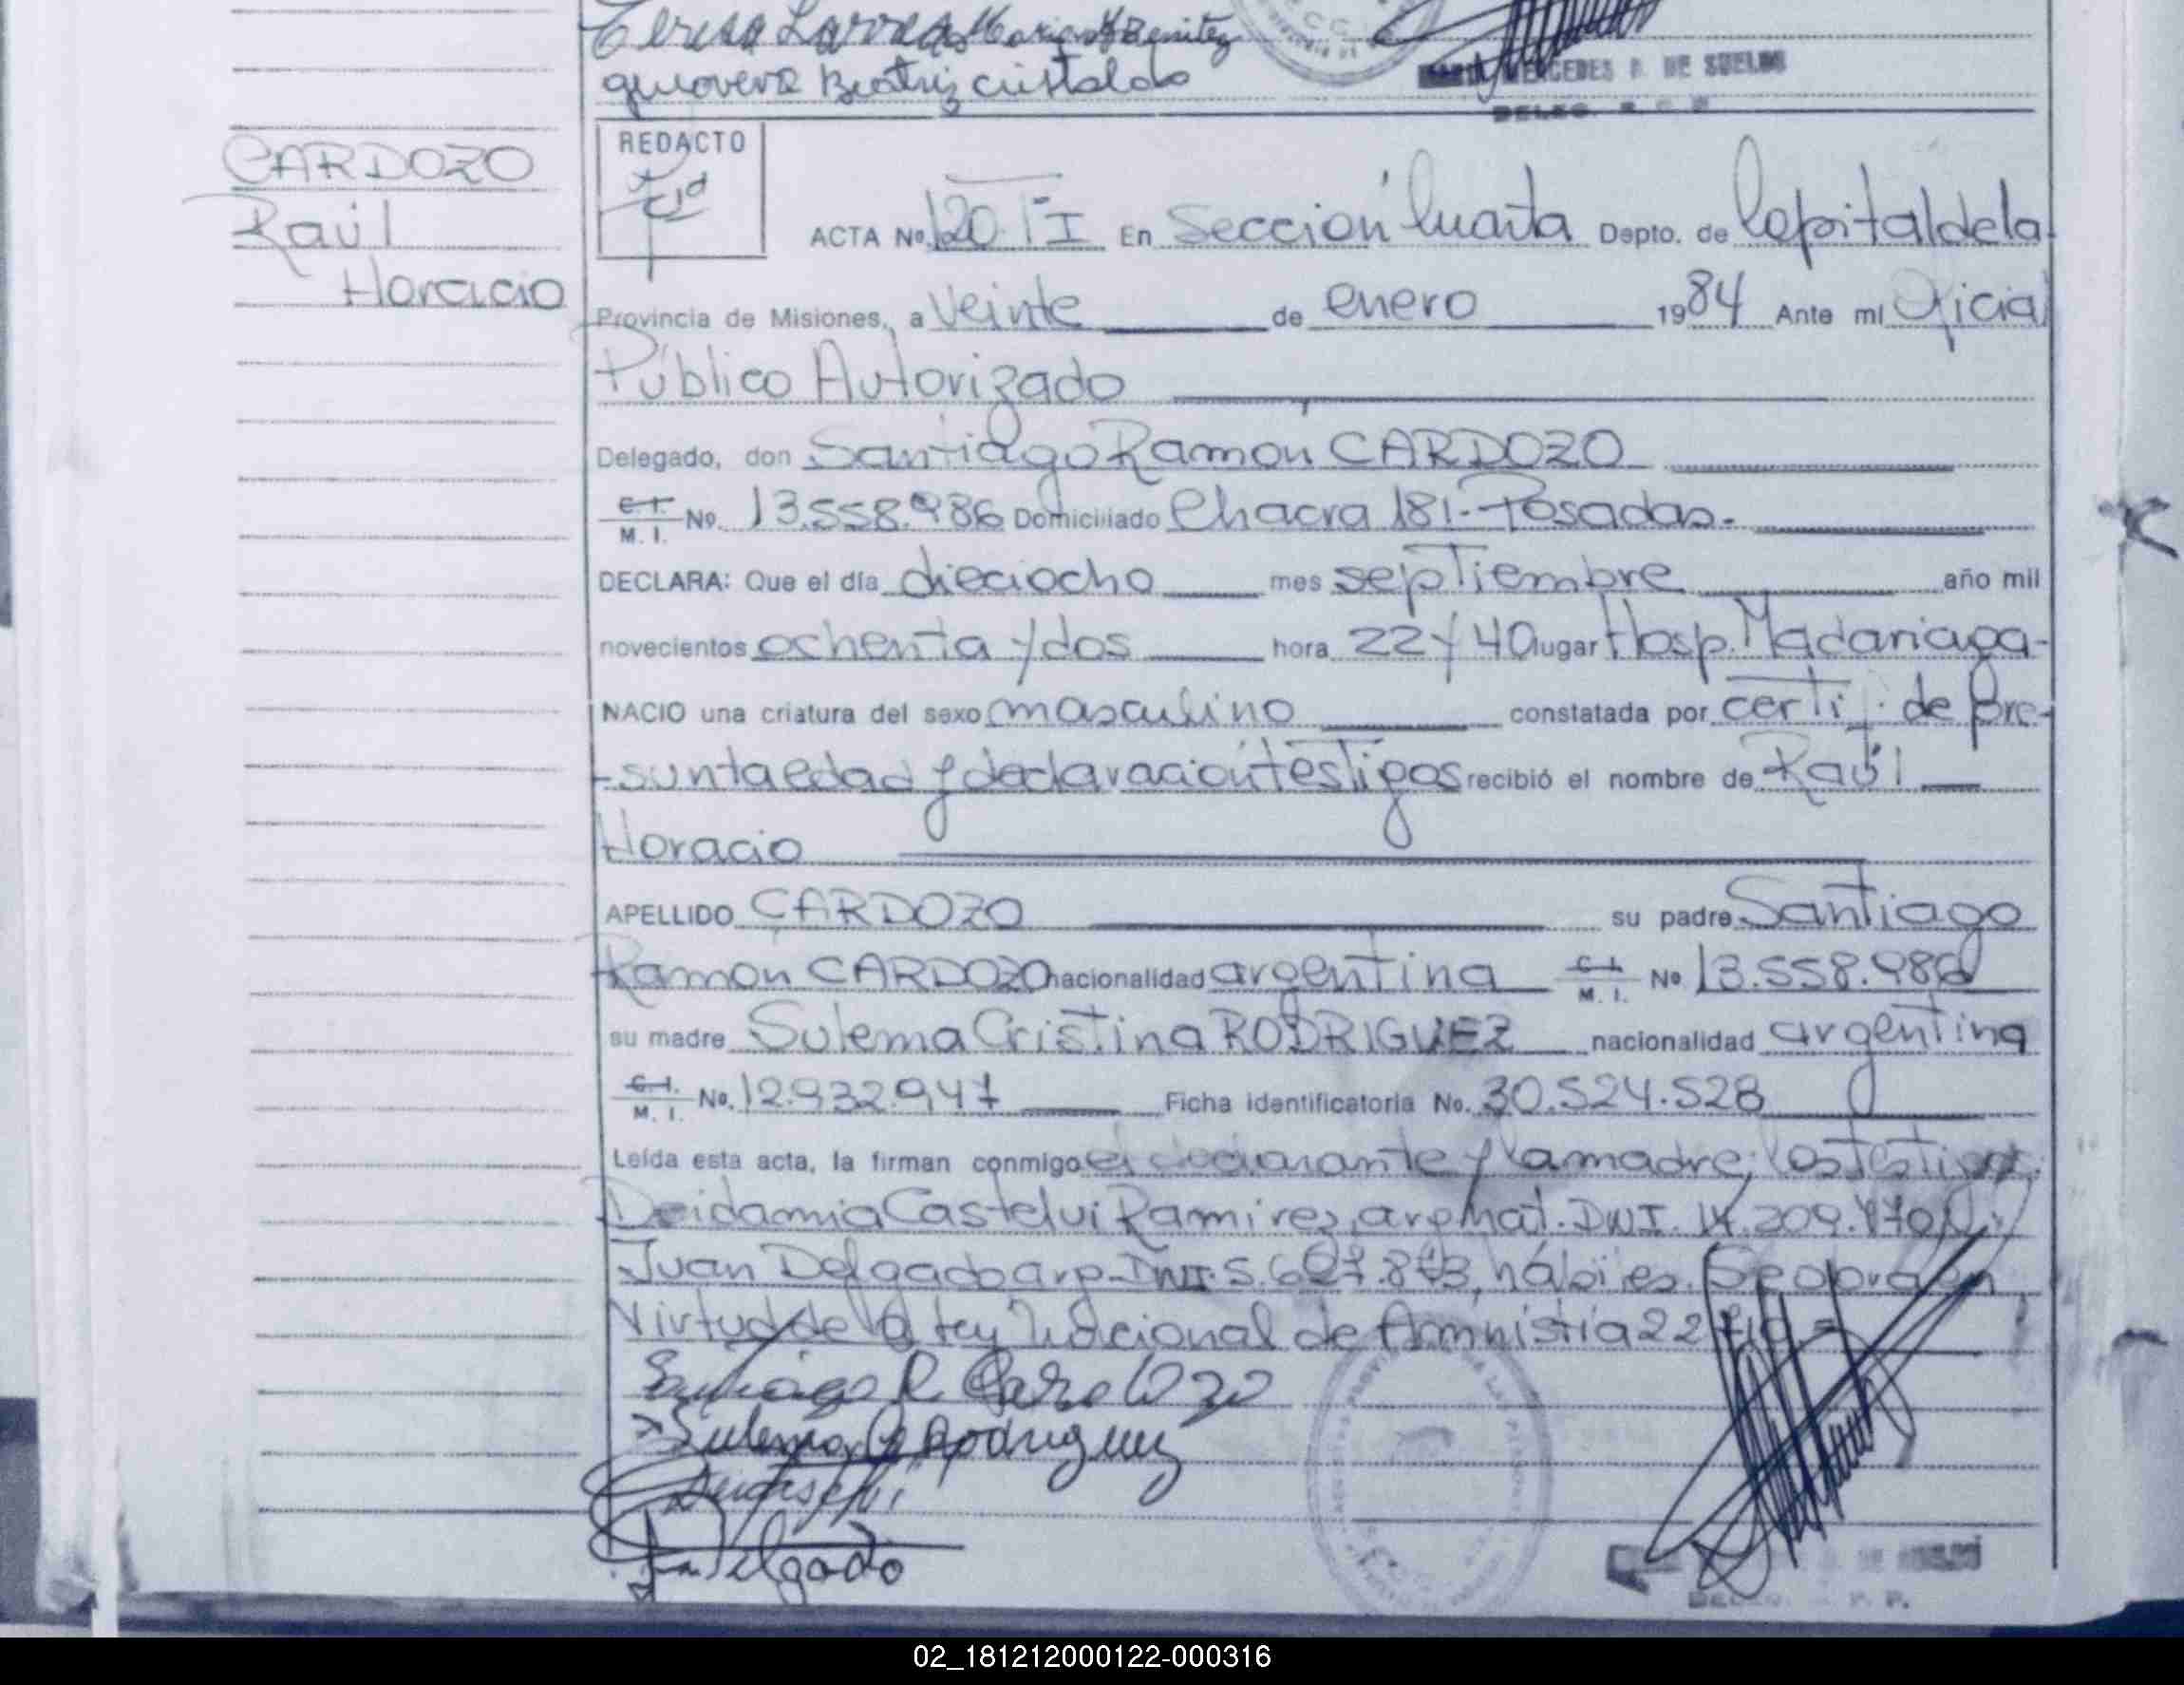 Teresa Larrea Maria H Benitez
Beatriz Cristaldo
MARIA MERCEDES P. DE SUELDO
DELEG. R. C. P.
CARDOZO
Raúl
Horacio
REDACTO
ACTA No. 120. TI En Sección Cuarta Depto. de Capital de la
Provincia de Misiones, a Veinte de enero 1984 Ante mi Oficial
Público Autorizado
Delegado, don Santiago Ramon CARDOZO
C.I. M. I. No. 13.558.986 Domiciliado Chacra 181.- Posadas.-
DECLARA: Que el día dieciocho mes septiembre año mil
novecientos ochenta y dos hora 22 y 40 lugar Hosp. Madariaga-
NACIO una criatura del sexo masculino constatada por certif. de pre-
-sunta edad y declaración testigos recibió el nombre de Raúl
Horacio
APELLIDO CARDOZO su padre Santiago
Ramon CARDOZO nacionalidad argentina C.I. M. I. No 13.558.986
su madre Sulema Cristina RODRIGUEZ nacionalidad argentina
C.I. M. I. No. 12.932.947 Ficha identificatoria No. 30.524.528
Leída esta acta, la firman conmigo el declarante y la madre; los testigos:
Deidamia Castelvi Ramirez, arg. nat. DNI.
Juan Delgado arg. DNI. hábiles. Se obra en
Virtud de la ley Nacional de Amnistía
Santiago R. Cardozo
Sulema C Rodriguez
Delgado
02_181212000122-000316